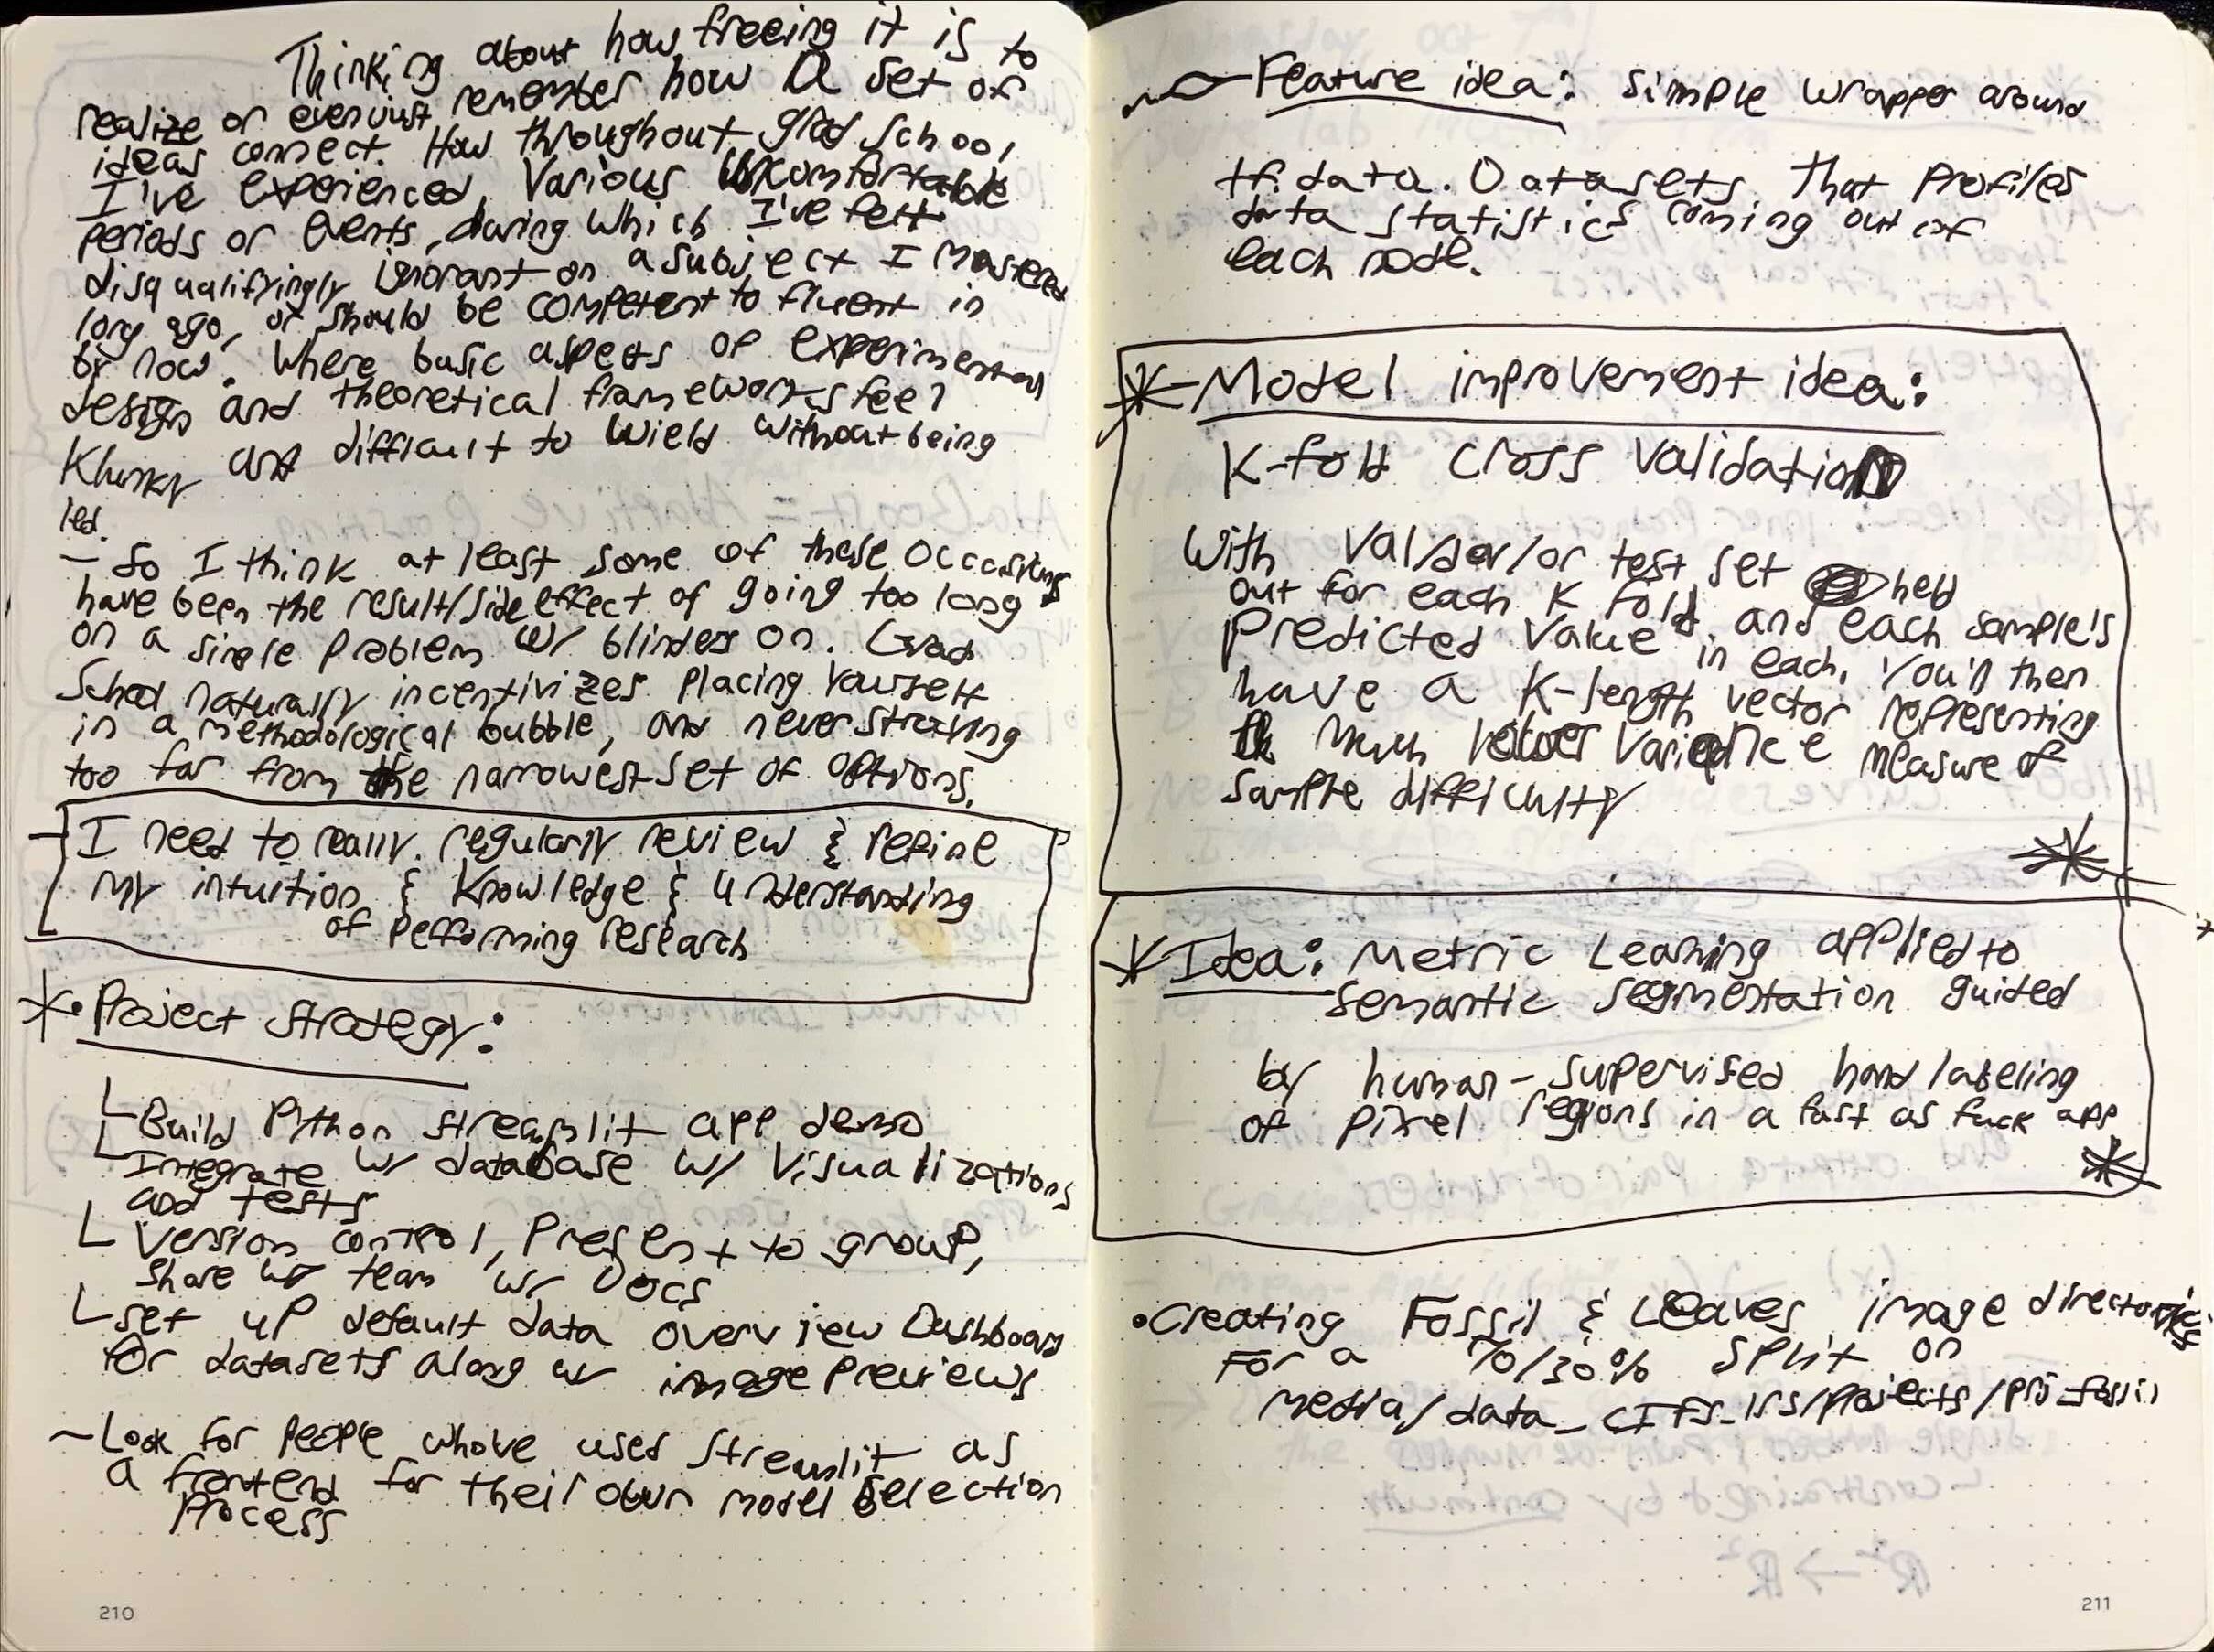 Thinking about how freeing it is to
realize or even just remember how a set of
ideas connect. How throughout grad school
I've experienced various uncomfortable
periods or events, during which I've felt
disqualifyingly ignorant on a subject I mastered
long ago, or should be competent to fluent in
by now. Where basic aspects of experimental
design and theoretical frameworks feel
Klunky and difficult to wield without being
led.
- So I think at least some of these occasions
have been the result/side effect of going too long
on a single problem w/ blinders on. Grad
School naturally incentivizes placing yourself
in a methodological bubble, and never straying
too far from the narrowest set of options.
- I need to really, regularly review & refine
my intuition & knowledge & understanding
of performing research
* • Project strategy:
└ Build Python streamlit app demo
└ Integrate w/ database w/ visualizations
add tests
└ Version control, Present to group,
share w/ team w/ Docs
└ set up default data overview Dashboard
for datasets along w/ image previews
~ Look for people whove used streamlit as
a frontend for their own model selection
process
210
Feature idea: simple wrapper around
tf.data.Datasets that profiles
data statistics coming out of
each node.
* - Model improvement idea:
K-fold cross validation
With val/and/or test set held
out for each K fold, and each sample's
predicted value in each, you'll then
have a K-length vector representing
much lower variance measure of
sample difficulty
*
* Idea: Metric Learning applied to
semantic segmentation guided
by human-supervised hand labeling
of pixel regions in a fast as fuck app
*
• Creating Fossil & Leaves image directories
For a 70/30% split on
media/data_cifs_lrs/projects/prj_fossil
211